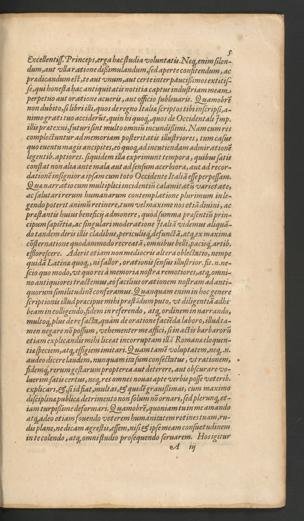 5
Excellentiss. Princeps, erga hæc studia voluntatis. Neq, enim silen-
dum, aut vlla ratione dissimulandum, sed aperte confitendum, ac
prædicandum est, te aut vnum, aut certe inter paucissimos extitis-
se, qui honesta hac antiquitatis notitia captus industriam meam
perpetuo aut oratione acueris, aut officio subleuaris. Quamobrē
non dubito, si libri illi, quos de regno Italiæ scriptos tibi inscripsi, a-
nimo grati tuo acciderūt, quin hi quoq, quos de Occidentali Imp.
illis prætexui, futuri sint multo omniū iucundissimi. Nam cum res
complectuntur ad memoriam posteritatis illustres, tum casus
quo euentu magis ancipites, eo quoq, ad incutiendam admirationē
legentib. aptiores. siquidem illa exprimunt tempora, quibus satis
constat non alia ante nostra aut ad sensum acerbiora, aut ad recor-
dationē insigniora ipsam cum toto Occidente Italiā esse perpessam.
Qua narratio cum multiplici incidentiū calamitatū varietate,
ac salutari rerum humanarum contemplatione plurimum intel-
gendo poterit animū retinere, tum vel maxime nos etiā diuini, ac
præstantis huius beneficij admonere, quòd summa præsentiū prin-
cipum sapiētia, ac singulari moderatione Italiā videmus aliquā-
do tandem diris illis cladibus, periculisq, defunctā, atq, ex maxima
cōsternatione quodammodo recreatā, omnibus belli, pacisq, artib.
efflorescere. Aderit etiam non mediocris altera oblectatio, nempe
quidā Latina quoq, ni fallor, orationis sensus illustrior. fit. n. ne-
scio quo modo, vt quo res à memoria nostra remotiores, atq, omni-
no antiquiores tractemus, eò facilius orationem nostram ad anti-
quorum similitudinē conferamus. Quanquam enim in hoc genere
scriptionis illud præcipue mihi præstādum puto, vt diligentiā adhi-
beam in colligendo, fidem in referendo, atq, ordinem in narrando,
multoq, plus de re factā, quàm de oratione faciēda laboro, illud ta-
men negare nō possum, vehementer me affici, si in actis barbarorū
etiam explicandis mihi liceat incorruptam illā Romanæ eloquen-
tiæ speciem, atq, effigiem imitari. Quam tamē voluptatem, neq, n.
audeo dicere laudem, nunquam ita sum consectatus, vt rationem,
fidemq, rerum gestarum propterea aut deterere, aut obscurare vo-
luerim satis certus, neq, res omnes nouas apte verbis posse veterib.
explicari, &, si id fiat, multas, & quidē grauissimas, cum maximo
disciplinæ publicæ detrimento non solum nō ornari, sed plerunq, et-
iam turpissime deformari. Quamobrē, quoniam tuis me amando
atq, adeo etiam fouendo veterem humanitatem retines tuam, ru-
dis plane, ne dicam agrestis, essem, nisi & ipse meam consuetudinem
in te colendo, atq, omni studio prosequendo seruarem. Hos igitur
A iij